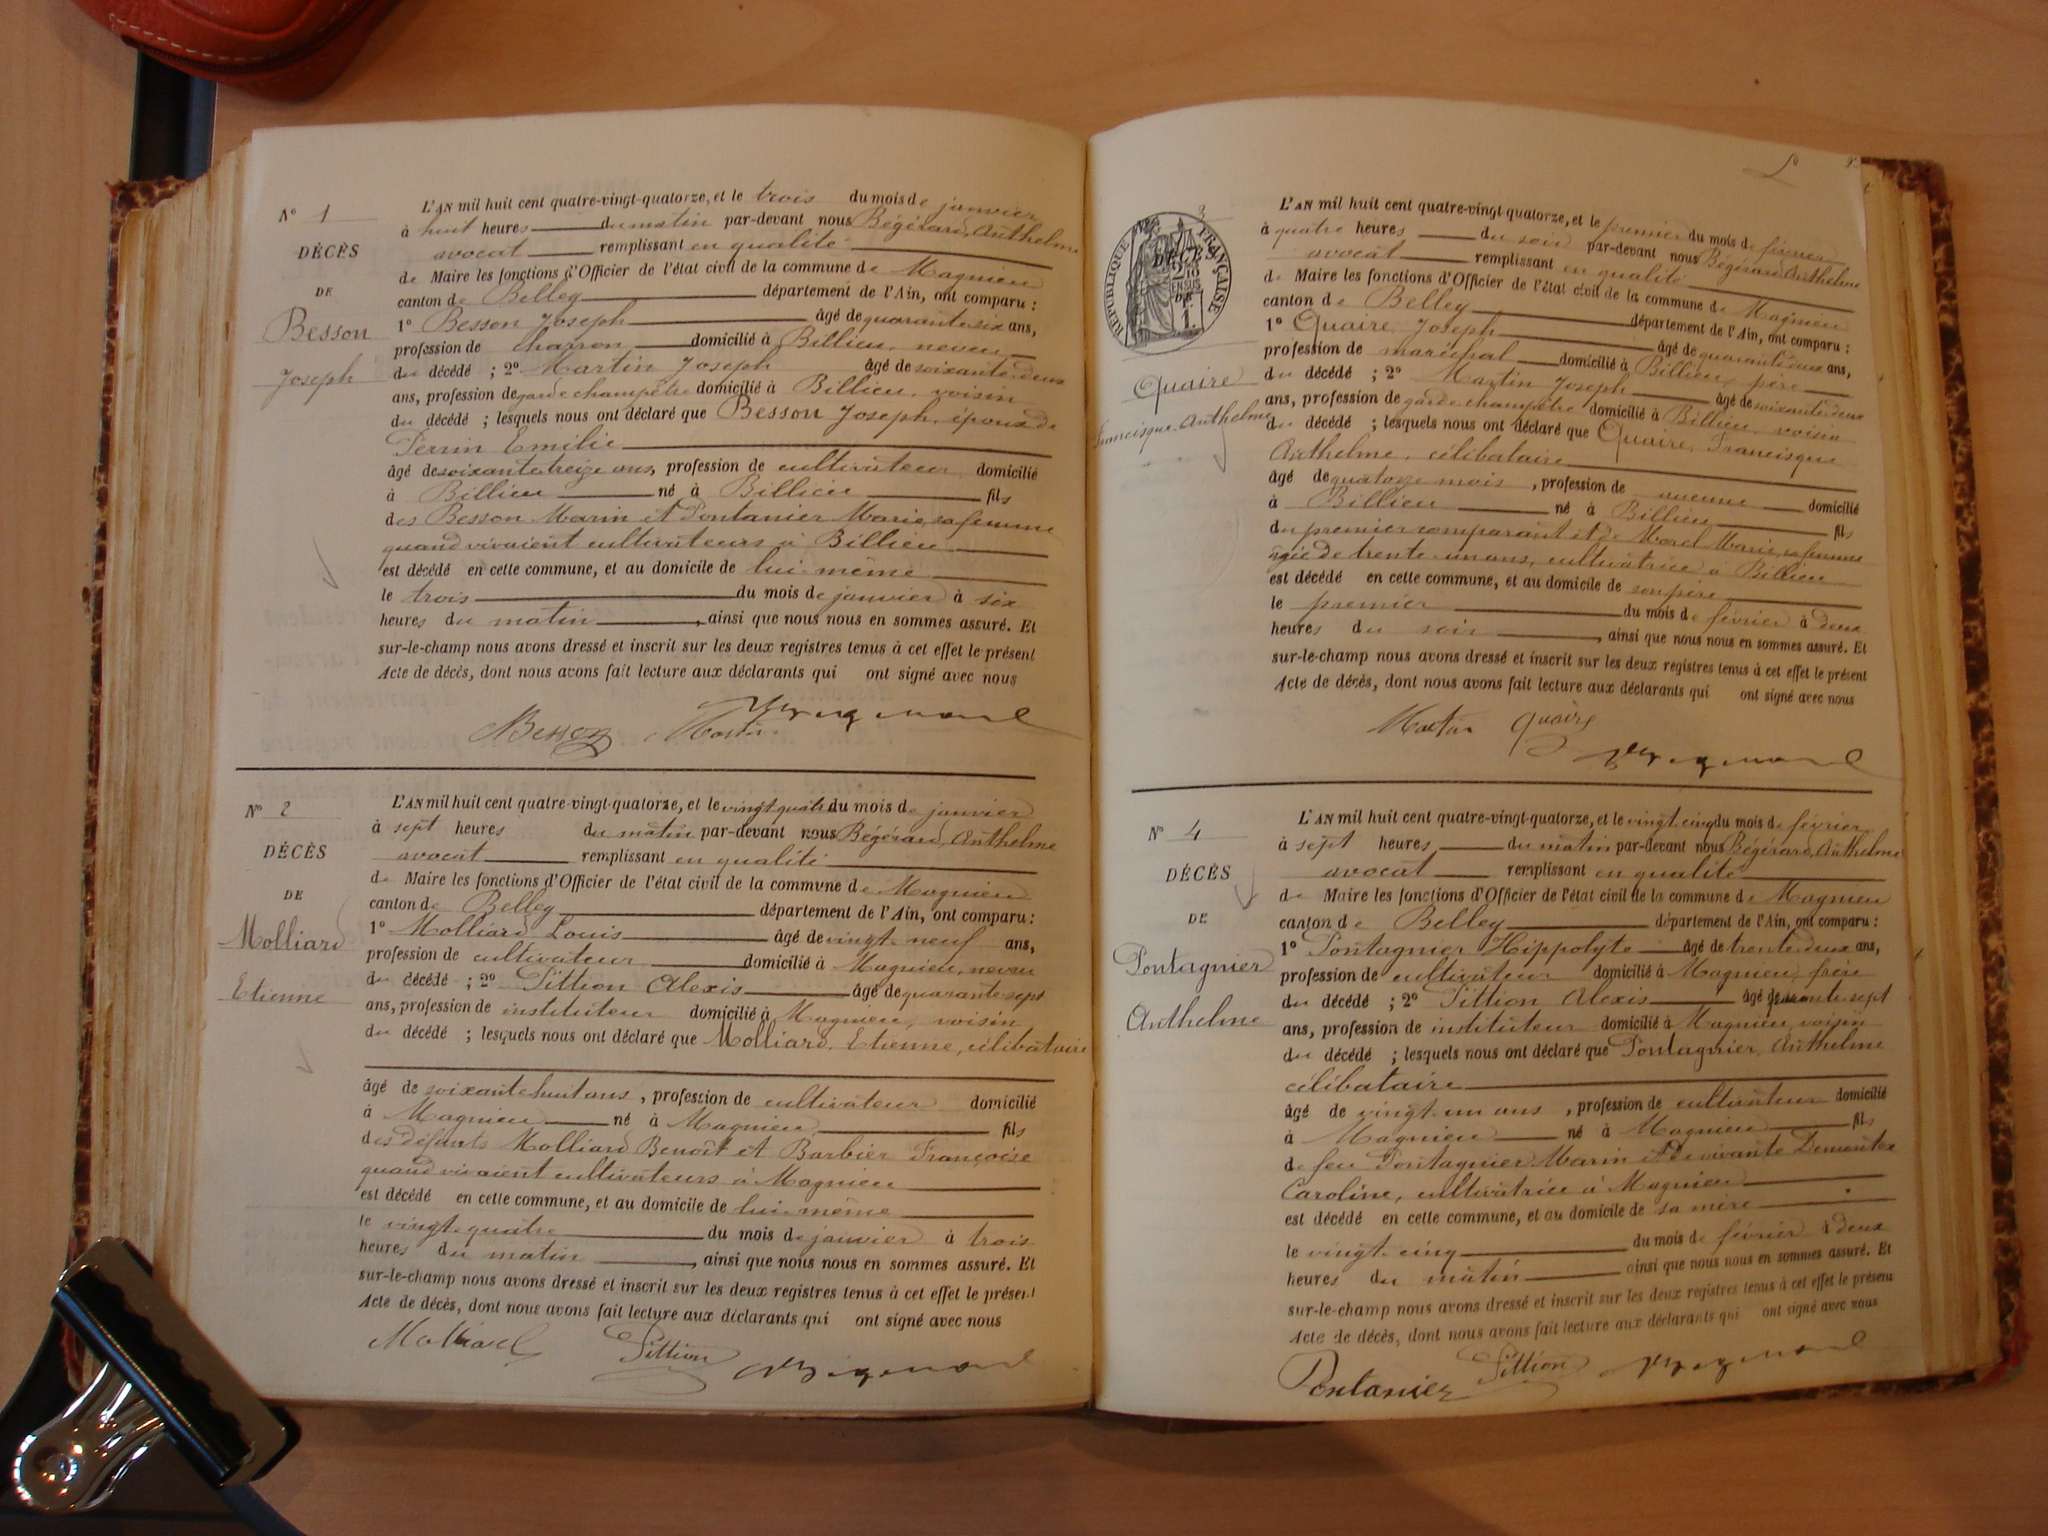 N° 1
DÉCÈS
DE
Besson
Joseph
L'AN mil huit cent quatre-vingt-quatorze, et le trois du mois de janvier
à huit heures du matin par-devant nous Bégérard, Anthelme
avocat remplissant en qualité
de Maire les fonctions d'Officier de l'état civil de la commune de Magnieu
canton de Belley département de l'Ain, ont comparu :
1° Besson Joseph âgé de quarante-six ans,
profession de charron domicilié à Billieu, neveu
du décédé ; 2° Martin Joseph âgé de soixante-deux
ans, profession de garde champêtre domicilié à Billieu, voisin
du décédé ; lesquels nous ont déclaré que Besson Joseph, époux de
Perrin Emilie
âgé de soixante-treize ans, profession de cultivateur domicilié
à Billieu né à Billieu fils
des Besson Marin et Pontanier Marie, sa femme
quand vivaient cultivateurs à Billieu
est décédé en cette commune, et au domicile de lui-même
le trois du mois de janvier à six
heures du matin, ainsi que nous nous en sommes assuré. Et
sur-le-champ nous avons dressé et inscrit sur les deux registres tenus à cet effet le présent
Acte de décès, dont nous avons fait lecture aux déclarants qui ont signé avec nous
Besson Martin
N° 2
DÉCÈS
DE
Molliard
Etienne
L'AN mil huit cent quatre-vingt-quatorze, et le vingt-quatre du mois de janvier
à sept heures du matin par-devant nous Bégérard, Anthelme
avocat remplissant en qualité
de Maire les fonctions d'Officier de l'état civil de la commune de Magnieu
canton de Belley département de l'Ain, ont comparu :
1° Molliard Louis âgé de vingt-neuf ans,
profession de cultivateur domicilié à Magnieu, neveu
du décédé ; 2° Sittion Alexis âgé de quarante-sept
ans, profession de instituteur domicilié à Magnieu, voisin
du décédé ; lesquels nous ont déclaré que Molliard, Etienne, célibataire
âgé de soixante huit ans, profession de cultivateur domicilié
à Magnieu né à Magnieu fils
des défunts Molliard Benoît et Barbier Françoise
quand vivaient cultivateurs à Magnieu
est décédé en cette commune, et au domicile de lui-même
le vingt-quatre du mois de janvier à trois
heures du matin, ainsi que nous nous en sommes assuré. Et
sur-le-champ nous avons dressé et inscrit sur les deux registres tenus à cet effet le présent
Acte de décès, dont nous avons fait lecture aux déclarants qui ont signé avec nous
Molliard Sittion
3
DÉCÈS
DE
RÉPUBLIQUE FRANÇAISE
Quaire
Francisque Anthelme
L'AN mil huit cent quatre-vingt-quatorze, et le premier du mois de février
à quatre heures du soir par-devant nous Bégérard, Anthelme
avocat remplissant en qualité
de Maire les fonctions d'Officier de l'état civil de la commune de Magnieu
canton de Belley département de l'Ain, ont comparu :
1° Quaire, Joseph âgé de quarante-deux ans,
profession de maréchal domicilié à Billieu, père
du décédé ; 2° Martin Joseph âgé de soixante-deux
ans, profession de garde champêtre domicilié à Billieu, voisin
du décédé ; lesquels nous ont déclaré que Quaire, Francisque
Anthelme, célibataire
âgé de quatorze mois, profession de aucune domicilié
à Billieu né à Billieu fils
du premier comparant et de Morel Marie, sa femme
âgée de trente-un ans, cultivatrice à Billieu
est décédé en cette commune, et au domicile de son père
le premier du mois de février à deux
heures du soir, ainsi que nous nous en sommes assuré. Et
sur-le-champ nous avons dressé et inscrit sur les deux registres tenus à cet effet le présent
Acte de décès, dont nous avons fait lecture aux déclarants qui ont signé avec nous
Martin Quaire
N° 4
DÉCÈS
DE
Pontagnier
Anthelme
L'AN mil huit cent quatre-vingt-quatorze, et le vingt-cinq du mois de février
à sept heures du matin par-devant nous Bégérard, Anthelme
avocat remplissant en qualité
de Maire les fonctions d'Officier de l'état civil de la commune de Magnieu
canton de Belley département de l'Ain, ont comparu :
1° Pontagnier Hippolyte âgé de trente-deux ans,
profession de cultivateur domicilié à Magnieu, frère
du décédé ; 2° Sittion Alexis âgé de quarante-sept
ans, profession de instituteur domicilié à Magnieu, voisin
du décédé ; lesquels nous ont déclaré que Pontagnier, Anthelme
célibataire
âgé de vingt-un ans, profession de cultivateur domicilié
à Magnieu né à Magnieu fils
de feu Pontagnier Marin et de vivante Dementex
Caroline, cultivatrice à Magnieu
est décédé en cette commune, et au domicile de sa mère
le vingt-cinq du mois de février à deux
heures du matin ainsi que nous nous en sommes assuré. Et
sur-le-champ nous avons dressé et inscrit sur les deux registres tenus à cet effet le présent
Acte de décès, dont nous avons fait lecture aux déclarants qui ont signé avec nous
Pontanier Sittion